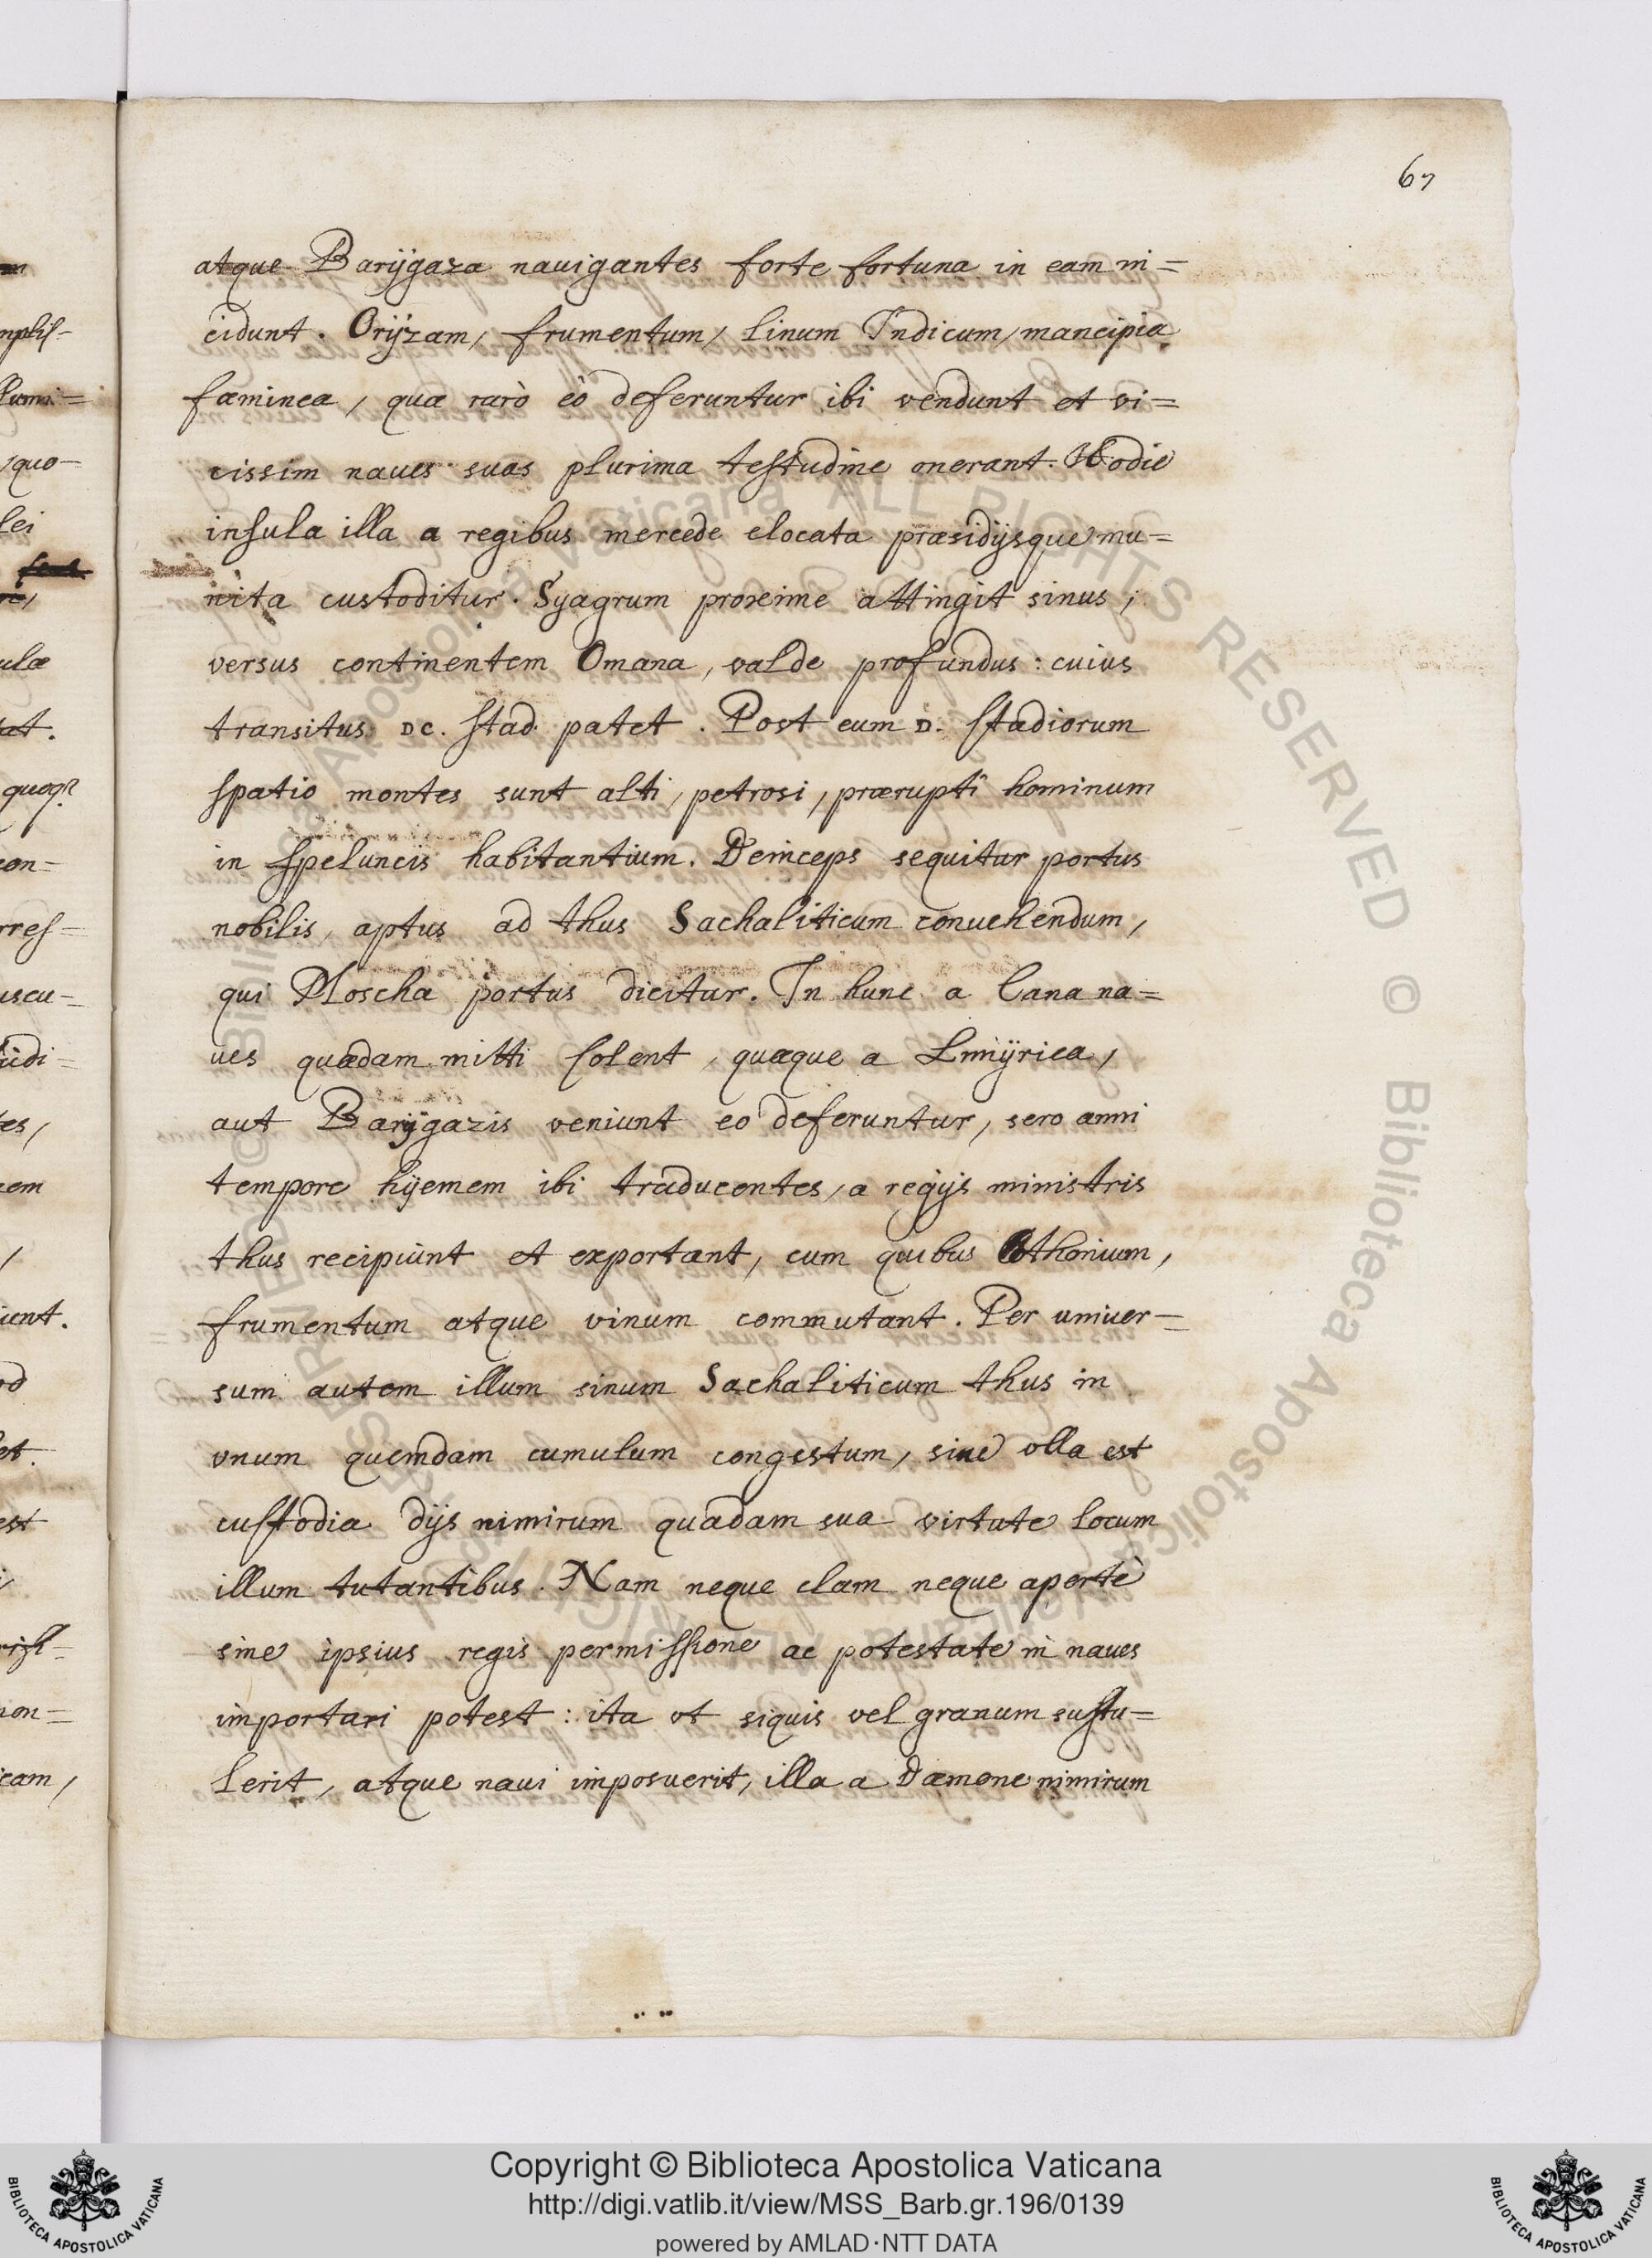 67
atque Barÿgaza nauigantes forte fortuna in eam in=
cidunt. Orÿzam, frumentum, linum Indicum, mancipia
fæminea, quæ rarò eò deferuntur ibi vendunt et vi=
cissim naues suas plurima testudine onerant. Hodie
insula illa a regibus mercede elocata præsidÿsque mu=
nita custoditur. Syagrum proxime attingit sinus,
versus continentem Omana, valde profundus: cuius
transitus DC. stad. patet. Post eum D. stadiorum
spatio montes sunt alti, petrosi, prærupti hominum
in speluncis habitantium. Deinceps sequitur portus
nobilis, aptus ad thus Sachaliticum conuehendum,
qui Moscha portus dicitur. In hunc a Cana na=
ues quædam mitti solent, quæque a Limÿrica,
aut Barÿgazis veniunt eo deferuntur, sero anni
tempore hÿemem ibi traducentes, a regÿs ministris
thus recipiunt et exportant, cum quibus Othonium,
frumentum atque vinum commutant. Per uniuer=
sum autem illum sinum Sachaliticum thus in
vnum quemdam cumulum congestum, sine vlla est
custodia dÿs nimirum quadam sua virtute locum
illum tutantibus. Nam neque clam neque apertè
sine ipsius regis permissione ac potestate in naues
importari potest: ita vt siquis vel granum sustu=
lerit, atque naui imposuerit, illa a Dæmone nimirum
Copyright © Biblioteca Apostolica Vaticana
http://digi.vatlib.it/view/MSS_Barb.gr.196/0139
powered by AMLAD·NTT DATA
BIBLIOTECA APOSTOLICA VATICANA
BIBLIOTECA APOSTOLICA VATICANA